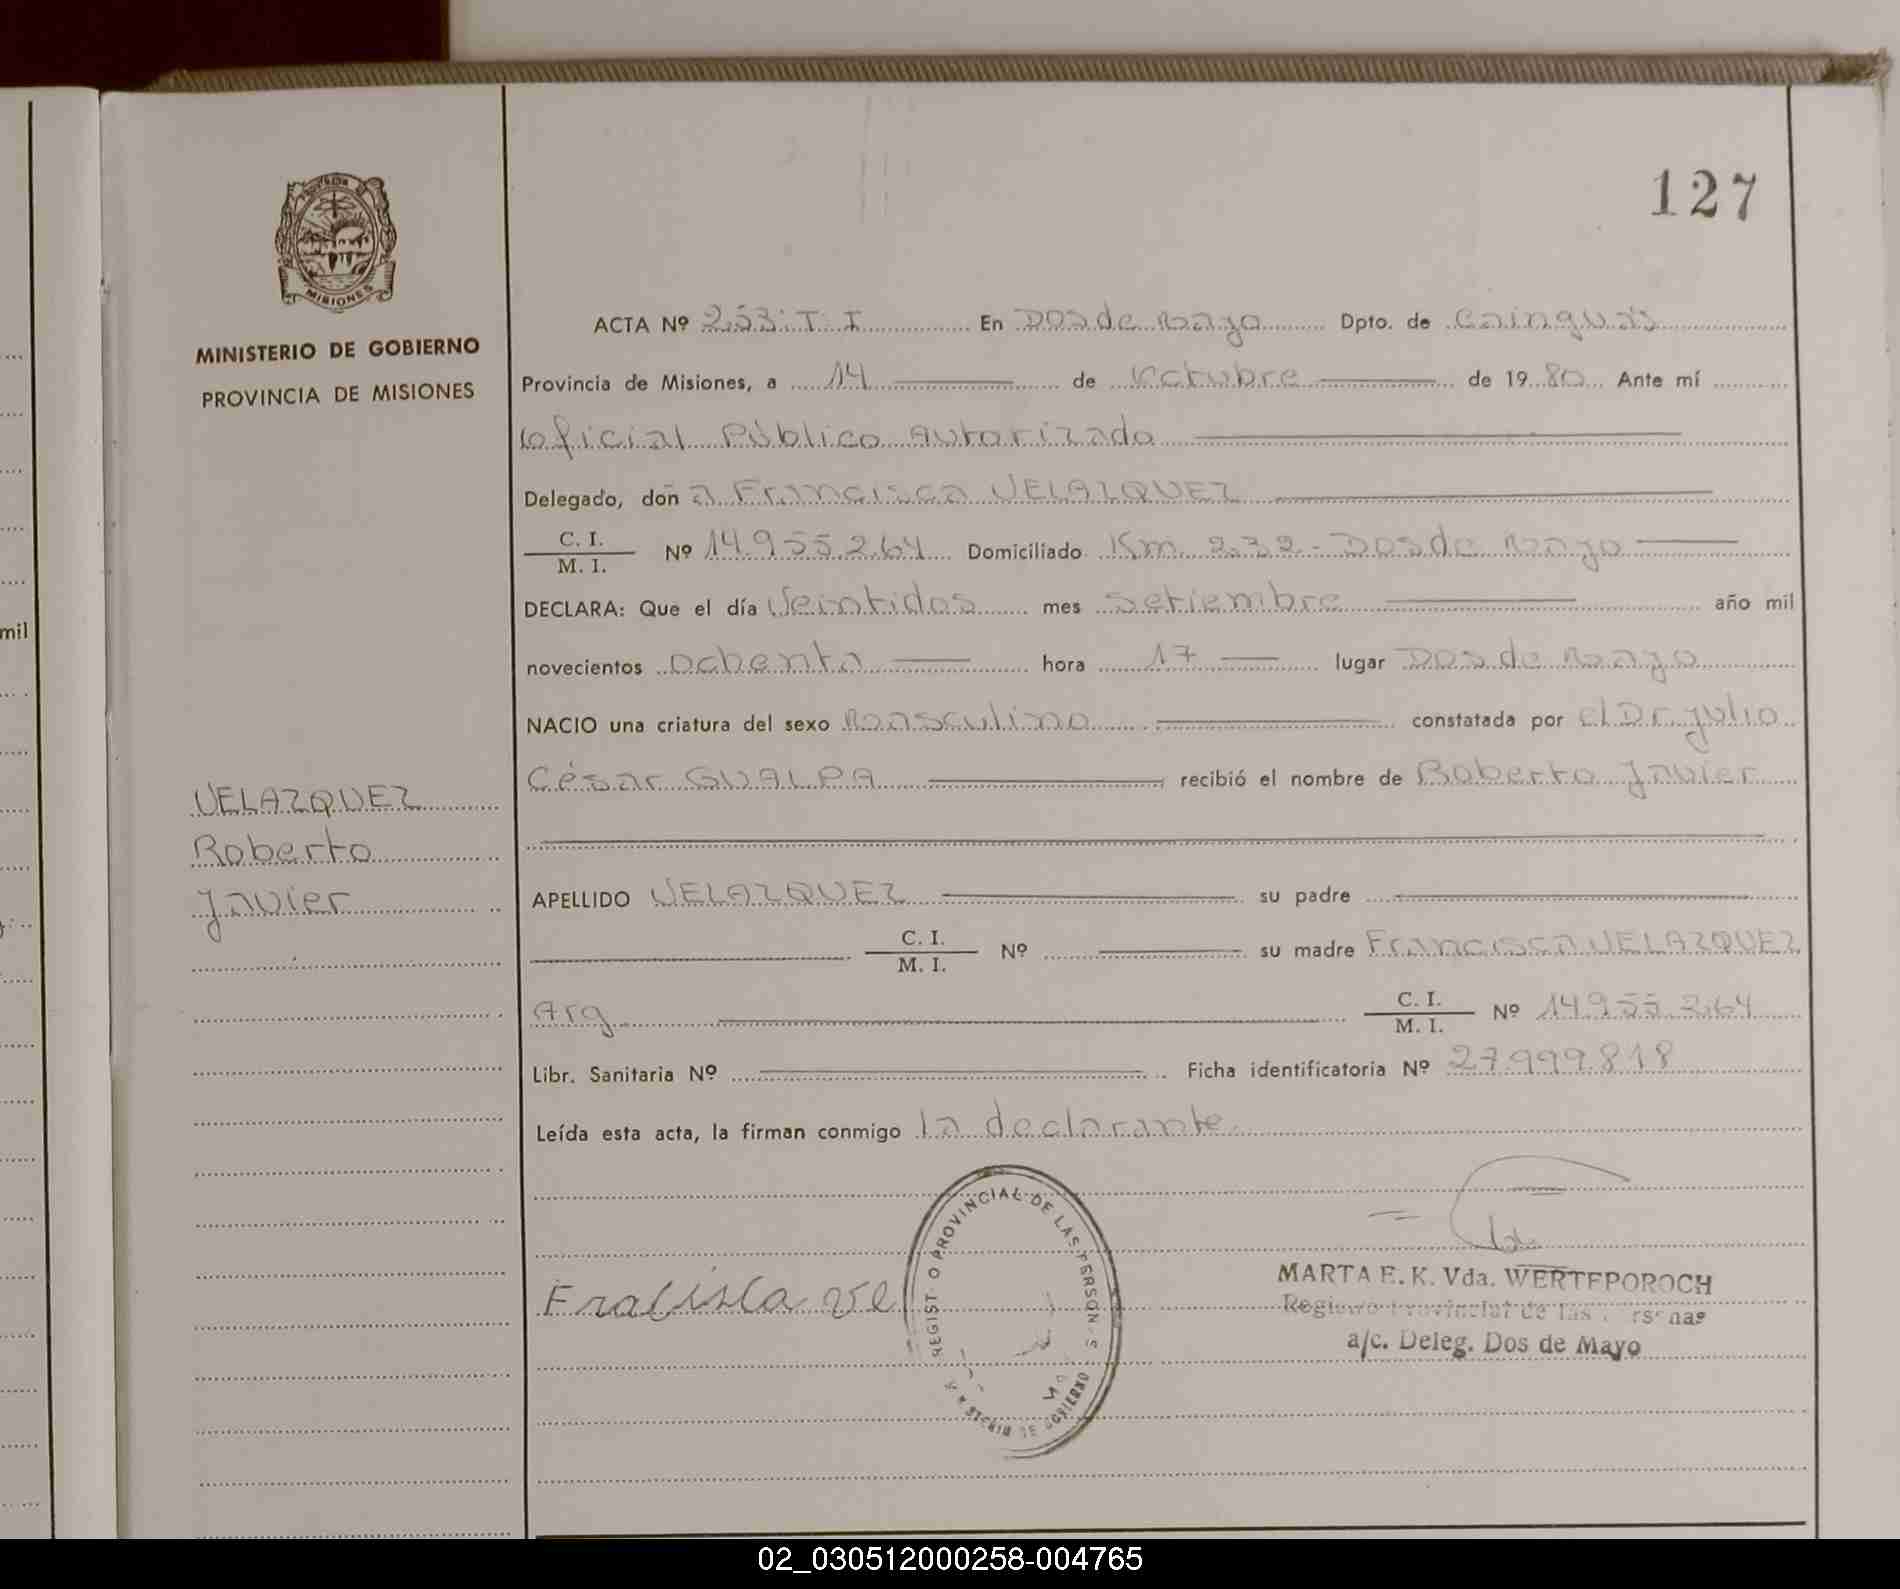 127
PROVINCIA DE
MISIONES
MINISTERIO DE GOBIERNO
PROVINCIA DE MISIONES
ACTA Nº 253. T. I En Dos de Mayo Dpto. de Cainguás
Provincia de Misiones, a 14 de Octubre de 1980 Ante mí
Oficial Público Autorizado
Delegado, doña Francisca VELAZQUEZ
C. I.
M. I. Nº 14.955.264 Domiciliado Km 232 - Dos de Mayo
DECLARA: Que el día Veintidos mes setiembre año mil
novecientos Ochenta hora 17 lugar Dos de Mayo
NACIO una criatura del sexo Masculino constatada por el Dr. Julio
César GUALPA recibió el nombre de Roberto Javier
VELAZQUEZ
Roberto
Javier
APELLIDO VELAZQUEZ su padre
C. I.
M. I. Nº su madre Francisca VELAZQUEZ
Arg C. I.
M. I. Nº 14.955.264
Libr. Sanitaria Nº Ficha identificatoria Nº 27.999.818
Leída esta acta, la firman conmigo la declarante.
REGIST O PROVINCIAL DE LAS PERSON S
DE GOBIERNO
Fracisca ve
MARTA E. K. Vda. WERTEPOROCH
Registro Provincial de las rsonas
a/c. Deleg. Dos de Mayo
mil
02_030512000258-004765